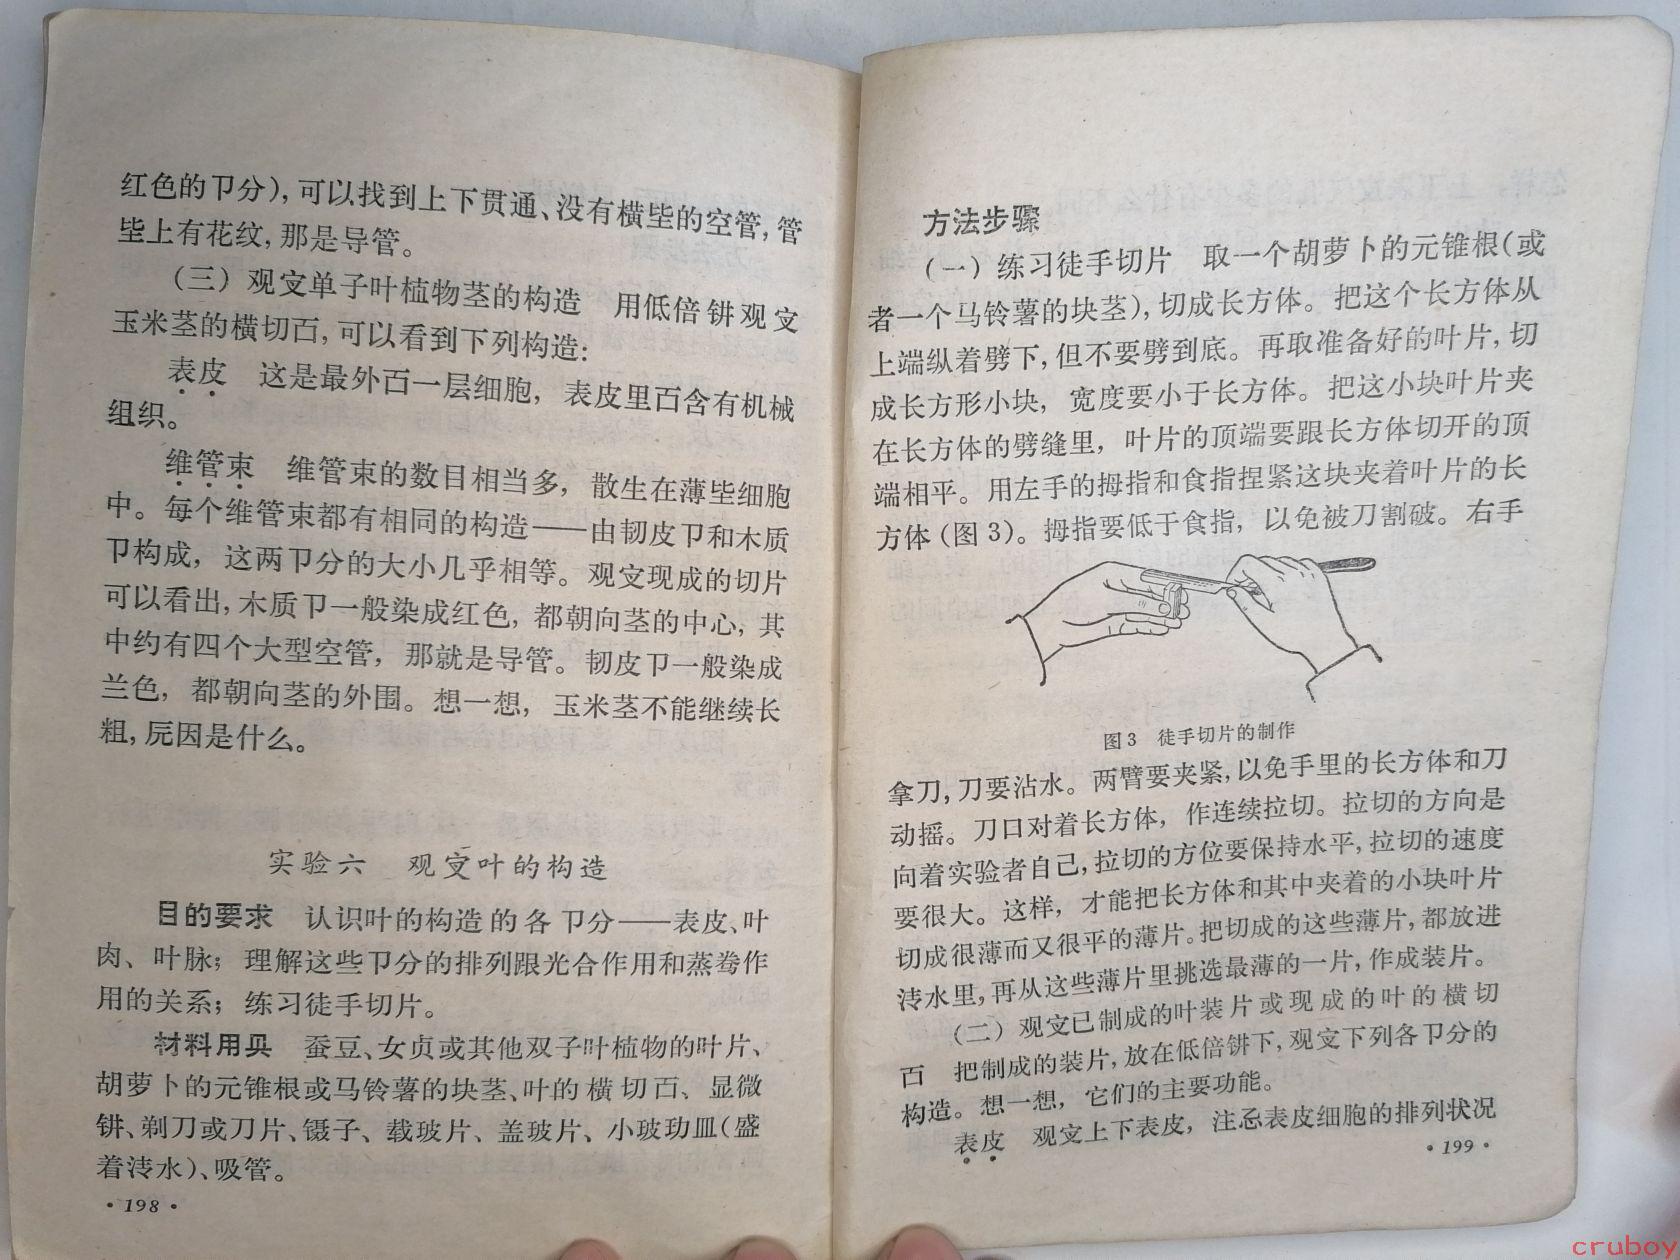 红色的卩分)，可以找到上下贯通、没有横坒的空管，管
坒上有花纹，那是导管。
(三) 观察单子叶植物茎的构造　用低倍镜观察
玉米茎的横切面，可以看到下列构造：
表皮　这是最外面一层细胞，表皮里面含有机械
组织。
维管束　维管束的数目相当多，散生在薄坒细胞
中。每个维管束都有相同的构造——由韧皮卩和木质
卩构成，这两卩分的大小几乎相等。观察现成的切片
可以看出，木质卩一般染成红色，都朝向茎的中心，其
中约有四个大型空管，那就是导管。韧皮卩一般染成
兰色，都朝向茎的外围。想一想，玉米茎不能继续长
粗，原因是什么。
实验六　观察叶的构造
目的要求　认识叶的构造的各卩分——表皮、叶
肉、叶脉；理解这些卩分的排列跟光合作用和蒸腾作
用的关系；练习徒手切片。
材料用具　蚕豆、女贞或其他双子叶植物的叶片、
胡萝卜的元锥根或马铃薯的块茎、叶的横切面、显微
镜、剃刀或刀片、镊子、载玻片、盖玻片、小玻璃皿(盛
着清水)、吸管。
• 198 •
方法步骤
(一) 练习徒手切片　取一个胡萝卜的元锥根(或
者一个马铃薯的块茎)，切成长方体。把这个长方体从
上端纵着劈下，但不要劈到底。再取准备好的叶片，切
成长方形小块，宽度要小于长方体。把这小块叶片夹
在长方体的劈缝里，叶片的顶端要跟长方体切开的顶
端相平。用左手的拇指和食指捏紧这块夹着叶片的长
方体(图3)。拇指要低于食指，以免被刀割破。右手
图3　徒手切片的制作
拿刀，刀要沾水。两臂要夹紧，以免手里的长方体和刀
动摇。刀口对着长方体，作连续拉切。拉切的方向是
向着实验者自己，拉切的方位要保持水平，拉切的速度
要很大。这样，才能把长方体和其中夹着的小块叶片
切成很薄而又很平的薄片。把切成的这些薄片，都放进
清水里，再从这些薄片里挑选最薄的一片，作成装片。
(二) 观察已制成的叶装片或现成的叶的横切
面　把制成的装片，放在低倍镜下，观察下列各卩分的
构造。想一想，它们的主要功能。
表皮　观察上下表皮，注意表皮细胞的排列状况
• 199 •
cruboy